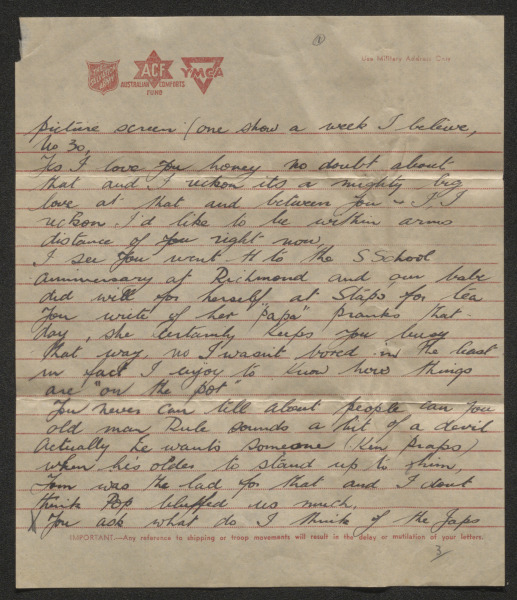 THE SALVATION ARMY
ACF
AUSTRALIAN COMFORTS
FUND
YMCA
Use Military Address Only
picture screen (one show a week I believe,
No 30,
Yes I love you honey no doubt about
that and I reckon its a mighty big
love at that and between you & I I
reckon I'd like to be within arms
distance of you right now,
I see you went to the S School
anniversary at Richmond and our babe
did well for herself at Staps for tea
You write of her "papa" pranks that
day, she certainly keeps you busy
that way, no I wasn't bored in the least
in fact I enjoy to know how things
are "on the pot"
You never can tell about people can you
old man Rule sounds a bit of a devil
actually he wants someone (Kin praps)
when his older to stand up to them,
Tom was the lad for that and I dont
think Pop bluffed us much.
You ask what do I think of the Japs
IMPORTANT.—Any reference to shipping or troop movements will result in the delay or mutilation of your letters.
3/